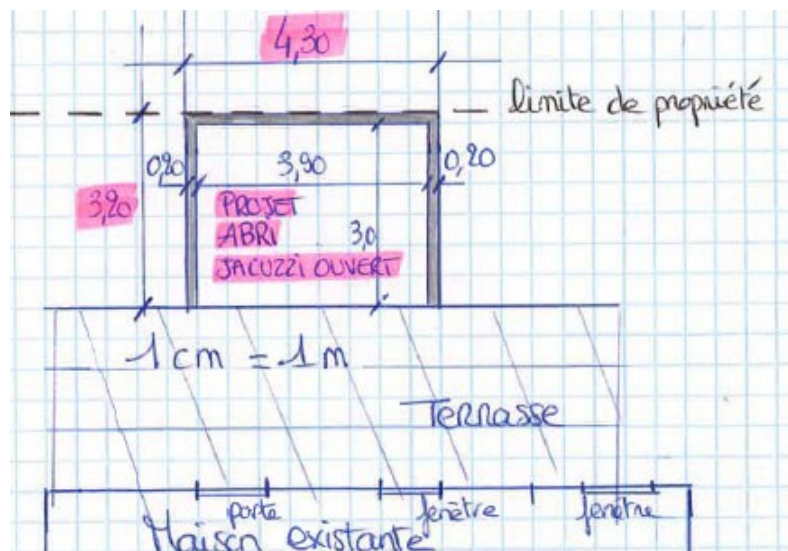 4,30
limite de propriété
0,20 3,90 0,20
3,20
PROJET
ABRI 3,0
JACUZZI OUVERT
1 cm = 1 m
Terrasse
porte fenètre fenètre
Maison existante